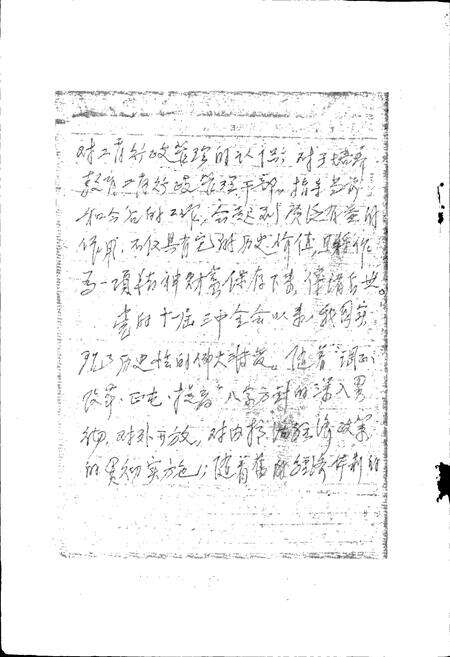 对工商行政管理的认识；对于培训
教育工商行政管理干部，指导当前
和今后的工作，会起到广泛有益的
作用，不仅具有它的历史价值，且将作
为一项精神财富保存下来，传诸后世。
党的十一届三中全会以来，我国实
现了历史性的伟大转变。随着“调整、
改革、整顿、提高”八字方针的深入贯
彻，对外开放，对内搞活经济政策
的贯彻实施；随着国家经济体制的